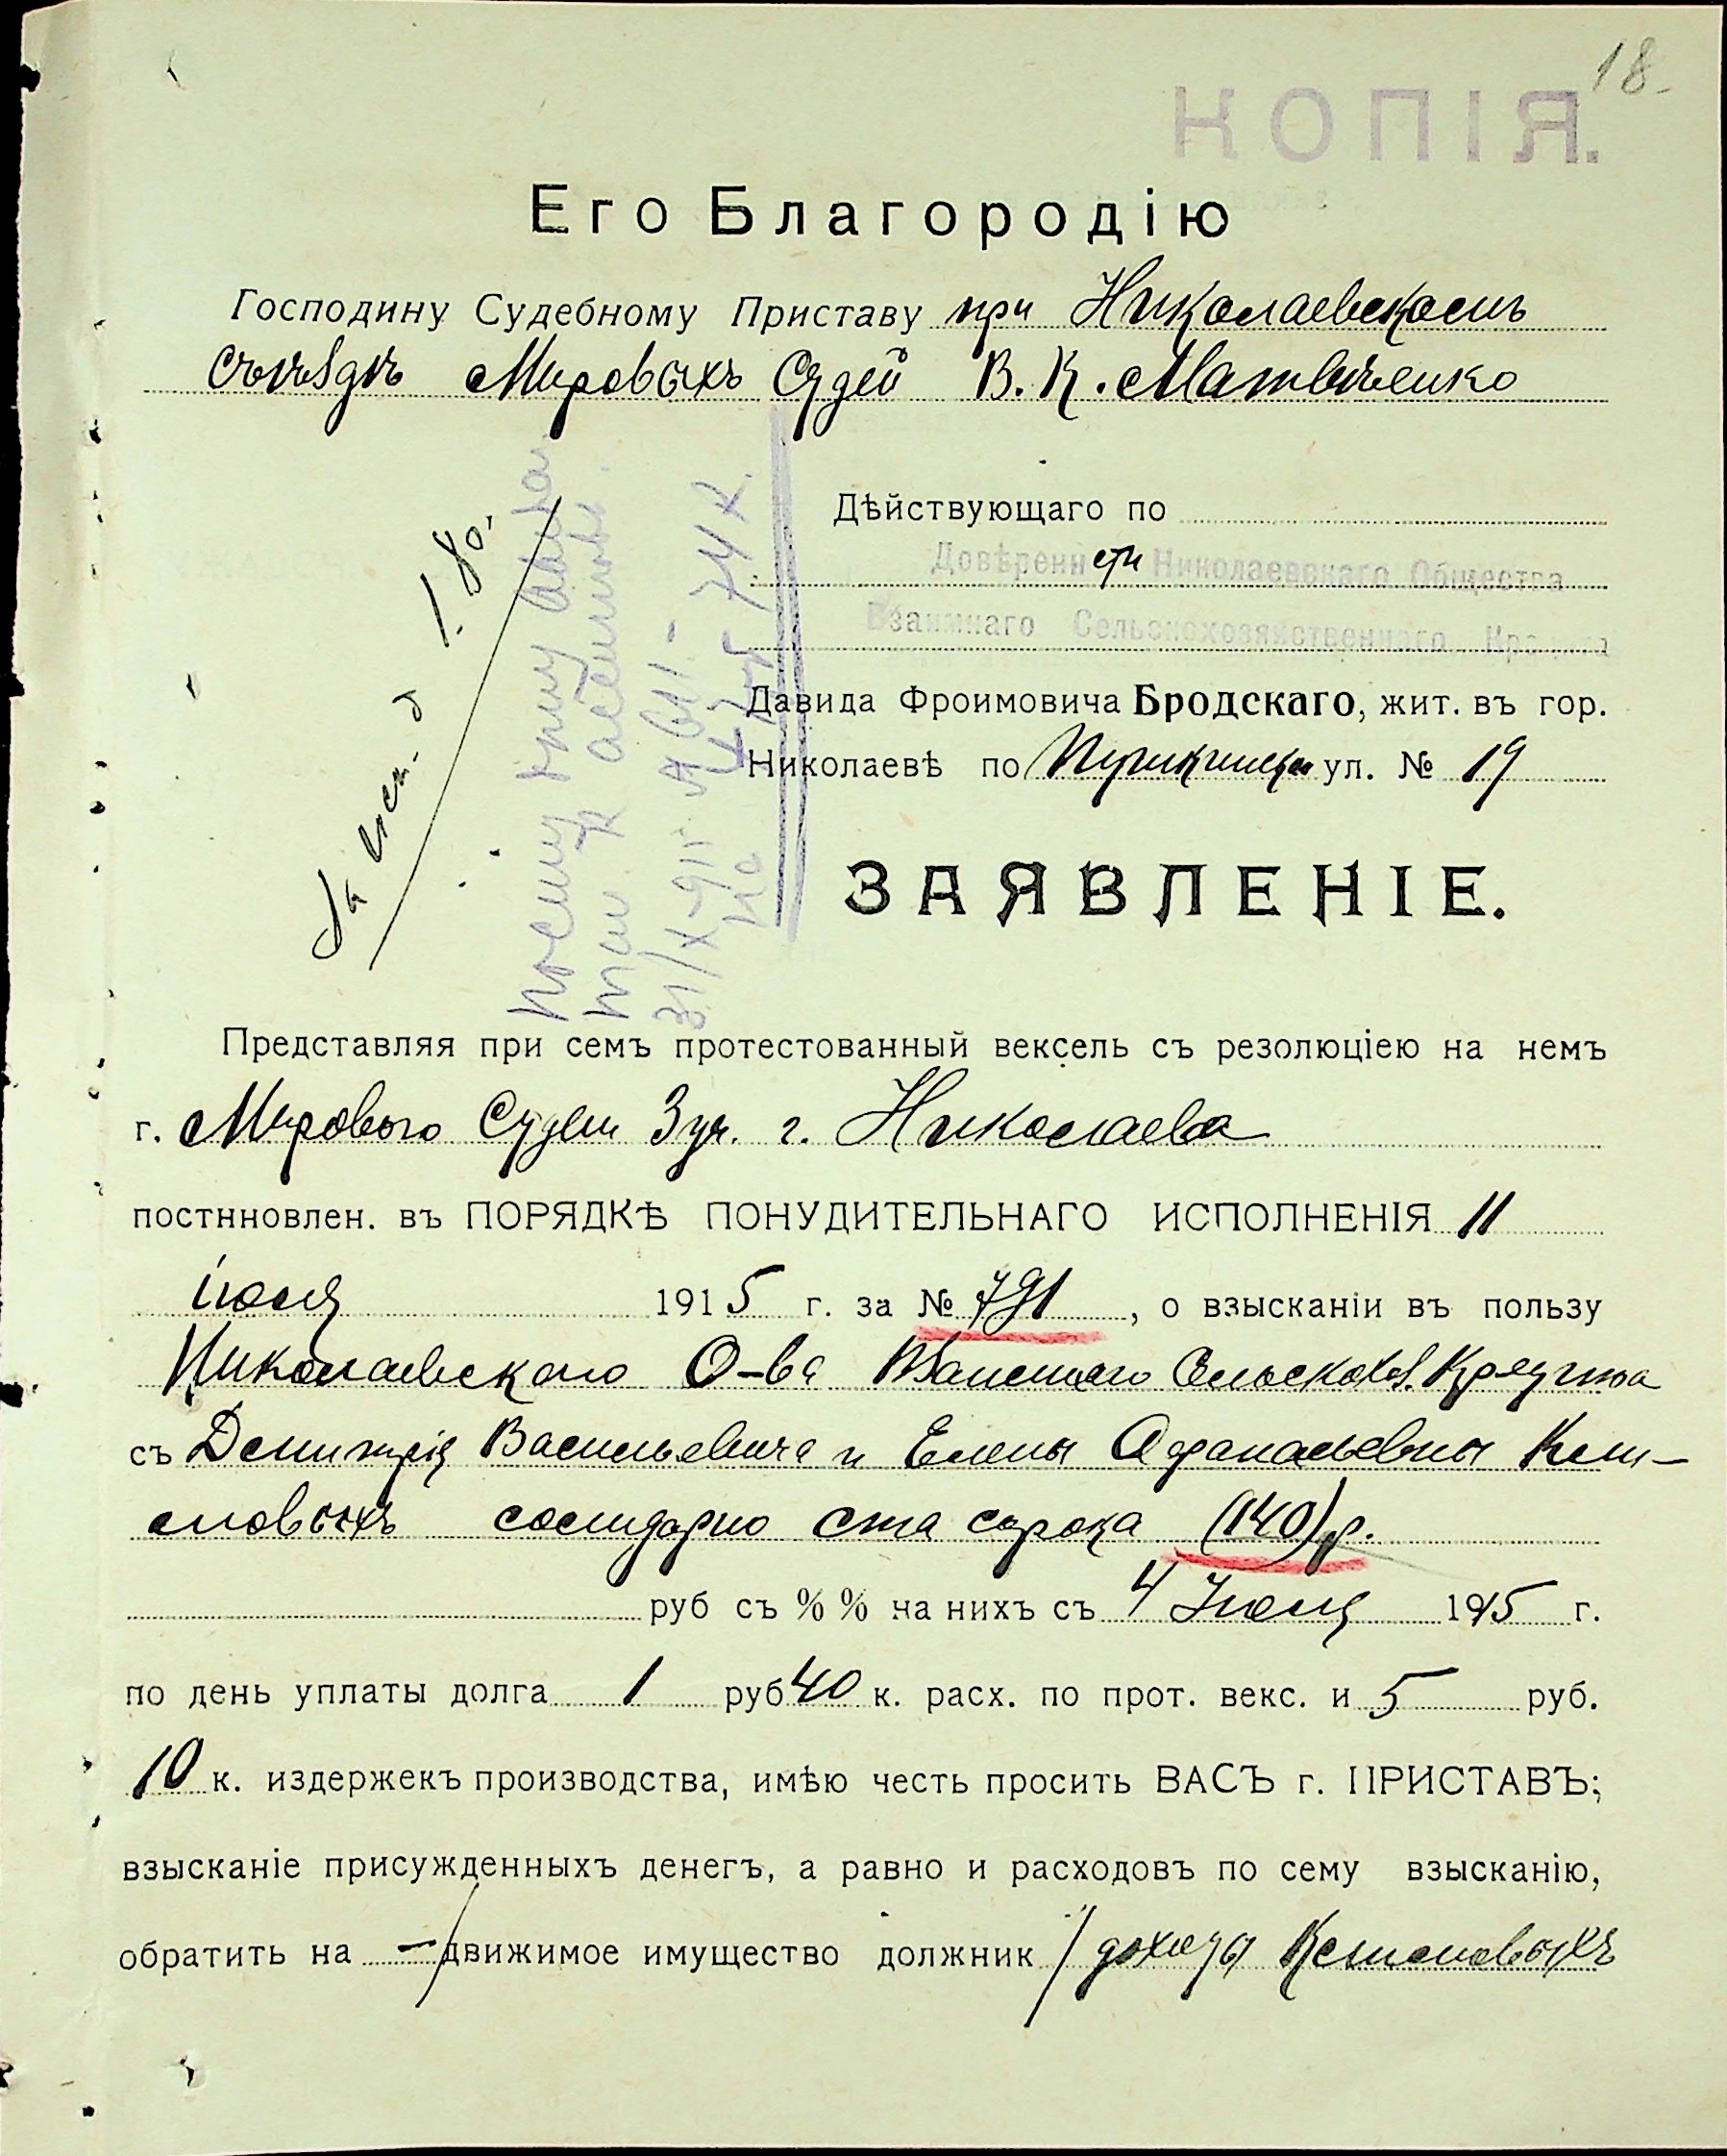 18.
КОПІЯ.
Его Благородію
Господину Судебному Приставу при Николаевскомъ
Съѣздѣ Мировыхъ Судей В. К. Матвѣенко
Дѣйствующаго по
Довѣренности Николаевскаго Общества
Взаимнаго Сельскохозяйственнаго Кредита
Давида Фроимовича Бродскаго, жит. въ гор.
Николаевѣ по Пушкинской ул. № 19
1. 80.
31/X-915
74 к.
ЗАЯВЛЕНІЕ.
Представляя при семъ протестованный вексель съ резолюціею на немъ
г. Мирового Судьи 3 уч. г. Николаева
постнновлен. въ ПОРЯДКѢ ПОНУДИТЕЛЬНАГО ИСПОЛНЕНІЯ 11
іюля 1915 г. за № 791, о взысканіи въ пользу
Николаевского О-ва Взаимнаго Сельскохоз. Кредита
съ Димитрія Васильевича и Елены Афанасьевны
солидарно ста сорока (140) р.
руб съ %% на нихъ съ 4 1915 г.
по день уплаты долга 1 руб 40 к. расх. по прот. векс. и 5 руб.
10 к. издержекъ производства, имѣю честь просить ВАСЪ г. ПРИСТАВЪ;
взысканіе присужденныхъ денегъ, а равно и расходовъ по сему взысканію,
обратить на — движимое имущество должник доходы